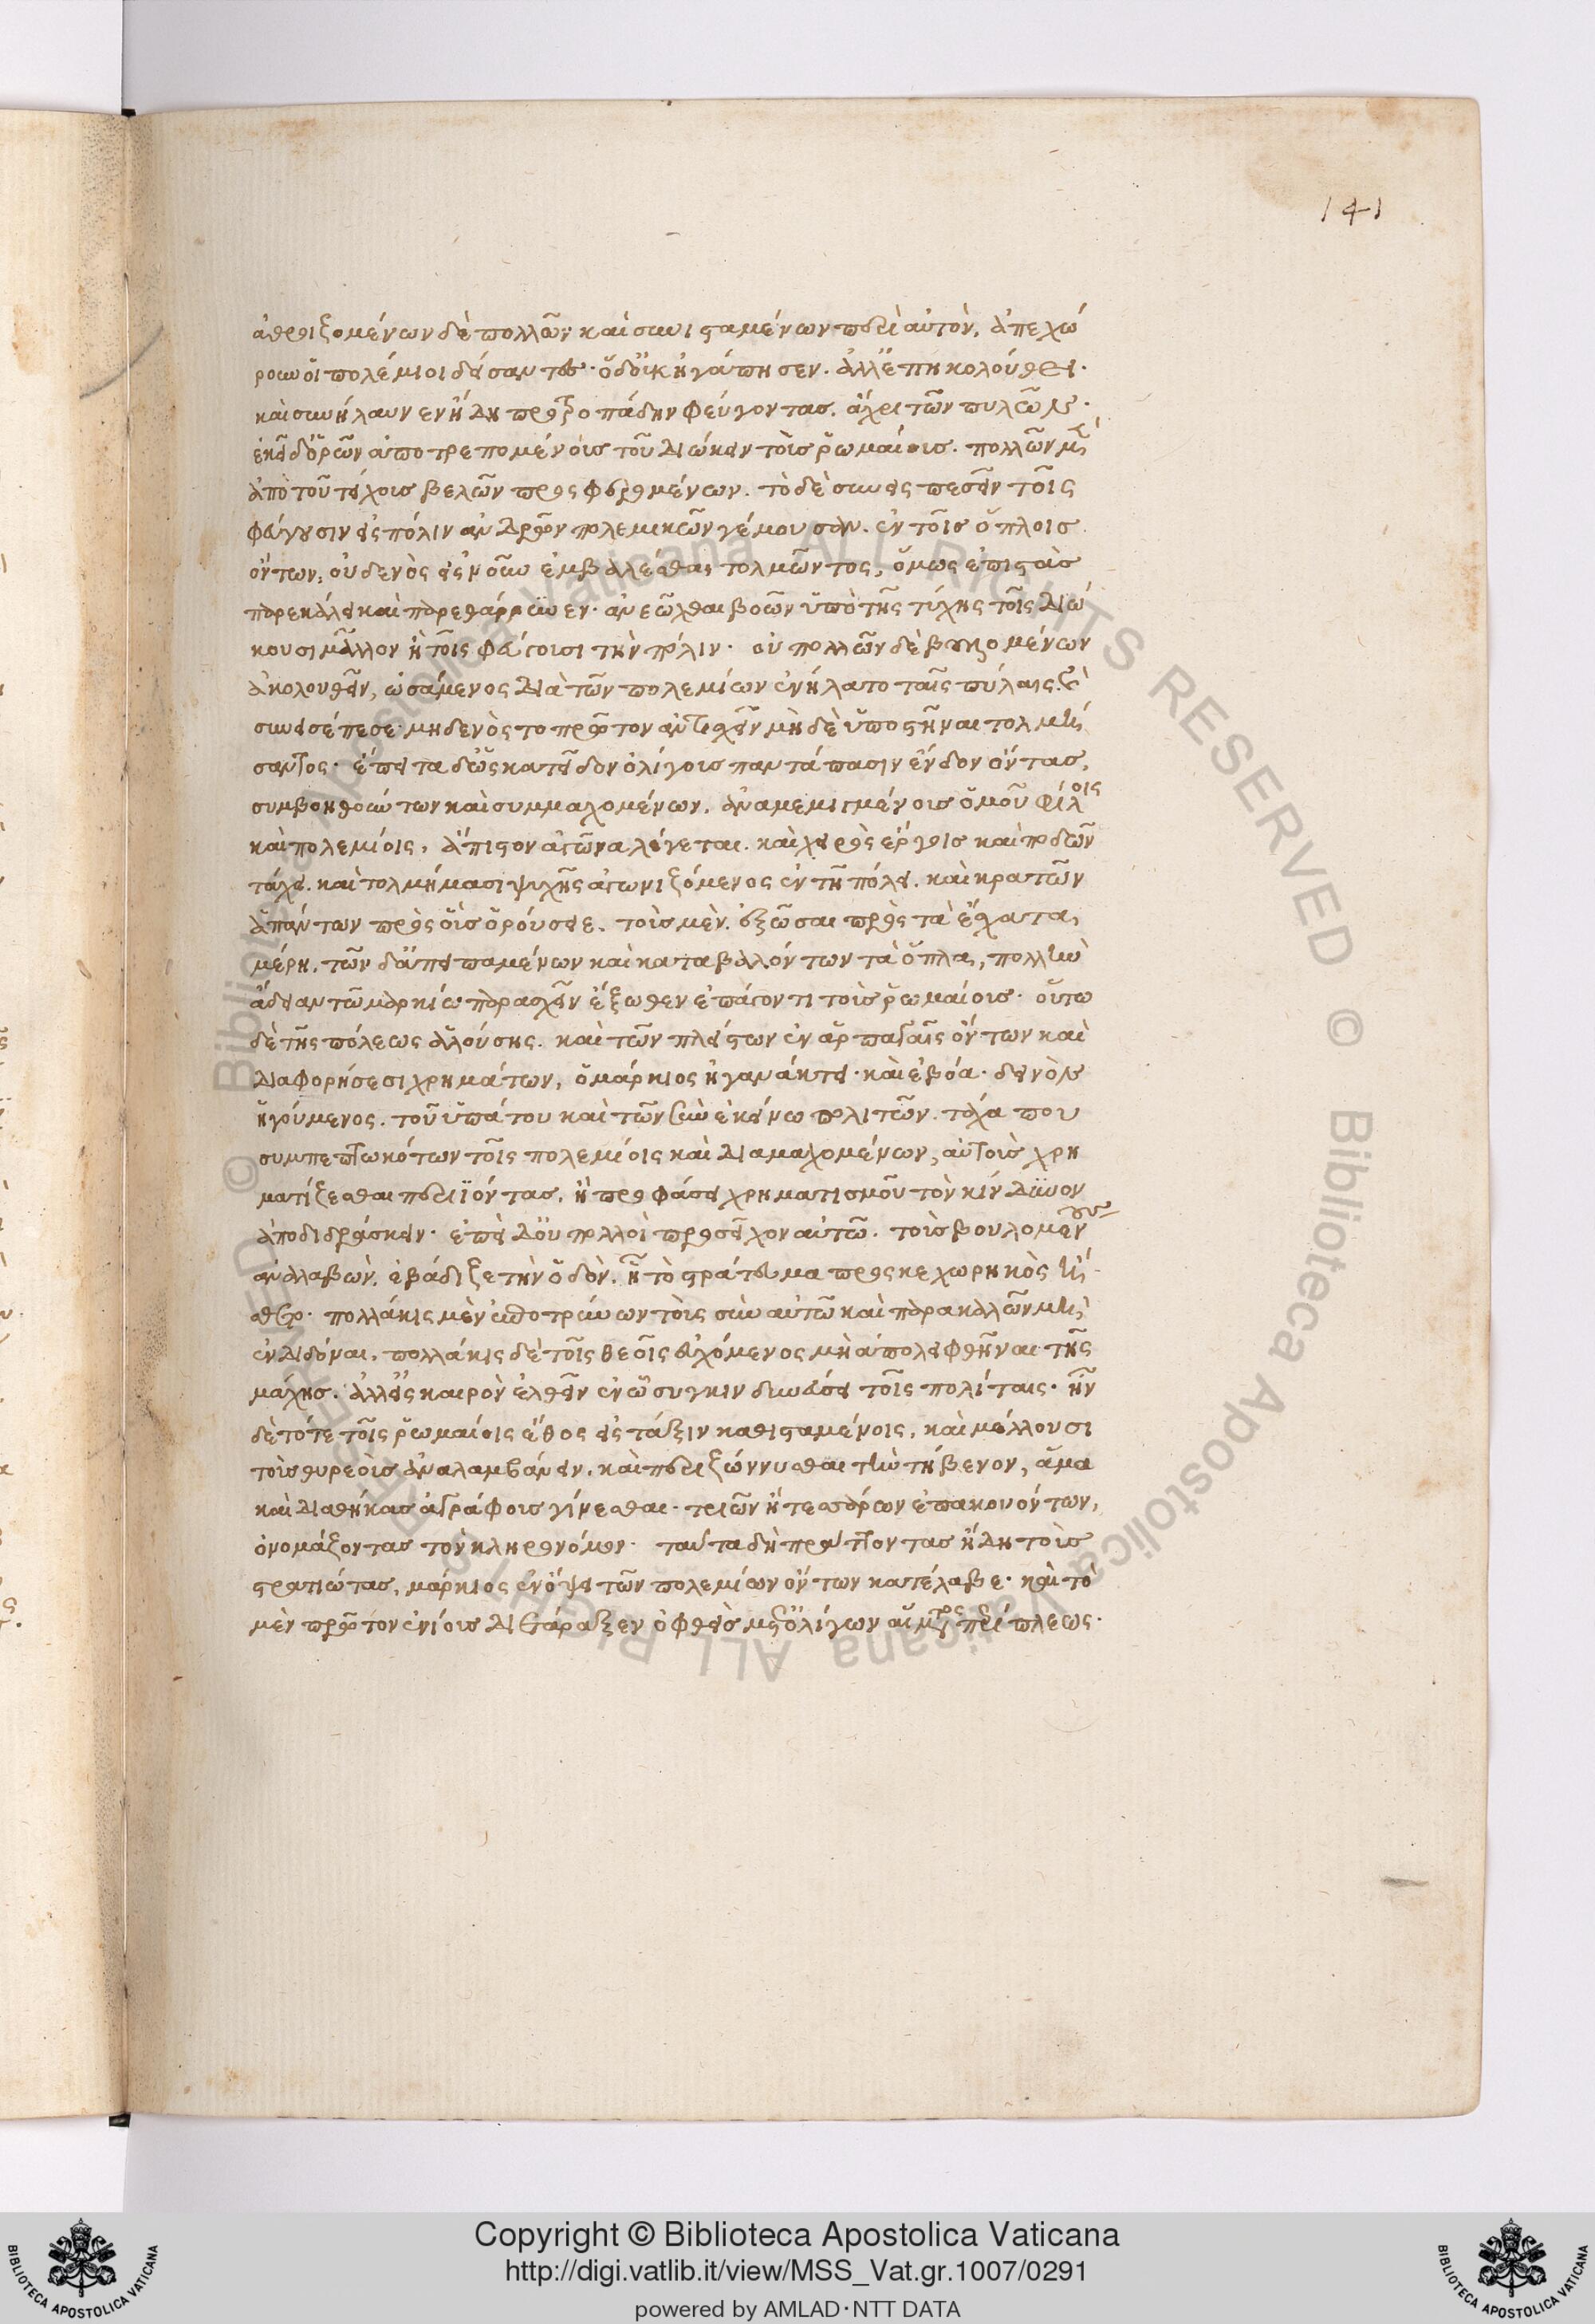 141
ἀθροιζομένων δὲ πολλῶν καὶ συνισταμένων περὶ αὐτὸν, ἀπεχώ
ρουν οἱ πολέμιοι δείσαντες· ὁ δ' οὐκ ἠγάπησεν. ἀλλ' ἐπηκολούθει.
καὶ συνήλαυνεν ἤδη προτροπάδην φεύγοντας. ἄχρι τῶν πυλῶν.
ἐκεῖ δ' ὁρῶν ἀποτρεπομένους τοῦ διώκειν τοὺς ῥωμαίους. πολλῶν μὲν
ἀπὸ τοῦ τείχους βελῶν προσφερομένων. τὸ δὲ συνεισπεσεῖν τοῖς
φεύγουσιν εἰς πόλιν ἀνδρῶν πολεμικῶν γέμουσαν. ἐν τοῖς ὅπλοις
ὄντων, οὐδενὸς εἰς νοῦν ἐμβαλέσθαι τολμῶντος, ὅμως ἐπιστὰς
παρεκάλει καὶ παρεθάρρυνεν. ἀνεῶχθαι βοῶν ὑπὸ τῆς τύχης τοῖς διώ
κουσι μᾶλλον ἢ τοῖς φεύγουσι τὴν πόλιν. οὐ πολλῶν δὲ βουλομένων
ἀκολουθεῖν, ὠσάμενος διὰ τῶν πολεμίων ἐνήλατο ταῖς πύλαις. καὶ
συνεισέπεσε μηδενὸς το πρῶτον ἀντισχεῖν μὴ δὲ ὑποστῆναι τολμή
σαντος. ἔπειτα δ' ὡς κατεῖδον ὀλίγους παντάπασιν ἔνδον ὄντας,
συμβοηθούντων καὶ συμμαχομένων. ἀναμεμιγμένους ὁμοῦ φίλοις
καὶ πολεμίοις, ἄπιστον ἀγῶνα λέγεται. καὶ χειρὸς ἔργοις καὶ ποδῶν
τάχει. καὶ τολμήμασι ψυχῆς ἀγωνιζόμενος ἐν τῇ πόλει. καὶ κρατῶν
ἁπάντων πρὸς οὓς ὀρούσειε. τοὺς μὲν. ἐξῶσαι πρὸς τὰ ἔσχατα,
μέρη. τῶν δ' ἀπειπαμένων καὶ καταβαλόντων τὰ ὅπλα, πολλὴν
ἄδειαν τῷ μαρκίῳ παρασχεῖν ἔξωθεν ἐπάγοντι τοὺς ῥωμαίους. οὕτω
δὲ τῆς πόλεως ἁλούσης. καὶ τῶν πλείστων ἐν ἁρπαγαῖς ὄντων καὶ
διαφορήσεσι χρημάτων, ὁ μάρκιος ἠγανάκτει. καὶ ἐβόα. δεινὸν
ἡγούμενος. τοῦ ὑπάτου καὶ τῶν σὺν ἐκείνῳ πολιτῶν. τάχα που
συμπεπτωκότων τοῖς πολεμίοις καὶ διαμαχομένων, αὐτοὺς χρη
ματίζεσθαι περιϊόντας, ἢ προφάσει χρηματισμοῦ τὸν κίνδυνον
ἀποδιδράσκειν. ἐπεὶ δ' οὐ πολλοὶ προσεῖχον αὐτῷ. τοὺς βουλομένους
ἀναλαβὼν. ἐβάδιζε τὴν ὁδὸν. ᾗ τὸ στράτευμα προσκεχωρηκὸς ᾔ
σθετο. πολλάκις μὲν ἐποτρύνων τοὺς σὺν αὐτῷ καὶ παρακαλῶν μὴ
ἐνδιδόναι. πολλάκις δὲ τοῖς θεοῖς εὐχόμενος μὴ ἀπολειφθῆναι τῆς
μάχης. ἀλλ' εἰς καιρὸν ἐλθεῖν ἐν ᾧ συγκινδυνεύσει τοῖς πολίταις. ἦν
δὲ τότε τοῖς ῥωμαίοις ἔθος εἰς τάξιν καθισταμένοις, καὶ μέλλουσι
τοὺς θυρεοὺς ἀναλαμβάνειν. καὶ περιζώννυσθαι τὴν τήβεννον, ἅμα
καὶ διαθήκας ἀγράφους γίνεσθαι. τριῶν ἢ τεσσάρων ἐπακουόντων,
ὀνομάζοντας τὸν κληρονόμον. ταῦτα δὴ πράττοντας ἤδη τοὺς
στρατιώτας, μάρκιος ἐν ὄψει τῶν πολεμίων ὄντων κατέλαβε. καὶ τὸ
μὲν πρῶτον ἐνίους διετάραξεν ὀφθεὶς μετ' ὀλίγων αἵματος περίπλεως.
Copyright © Biblioteca Apostolica Vaticana
http://digi.vatlib.it/view/MSS_Vat.gr.1007/0291
powered by AMLAD·NTT DATA